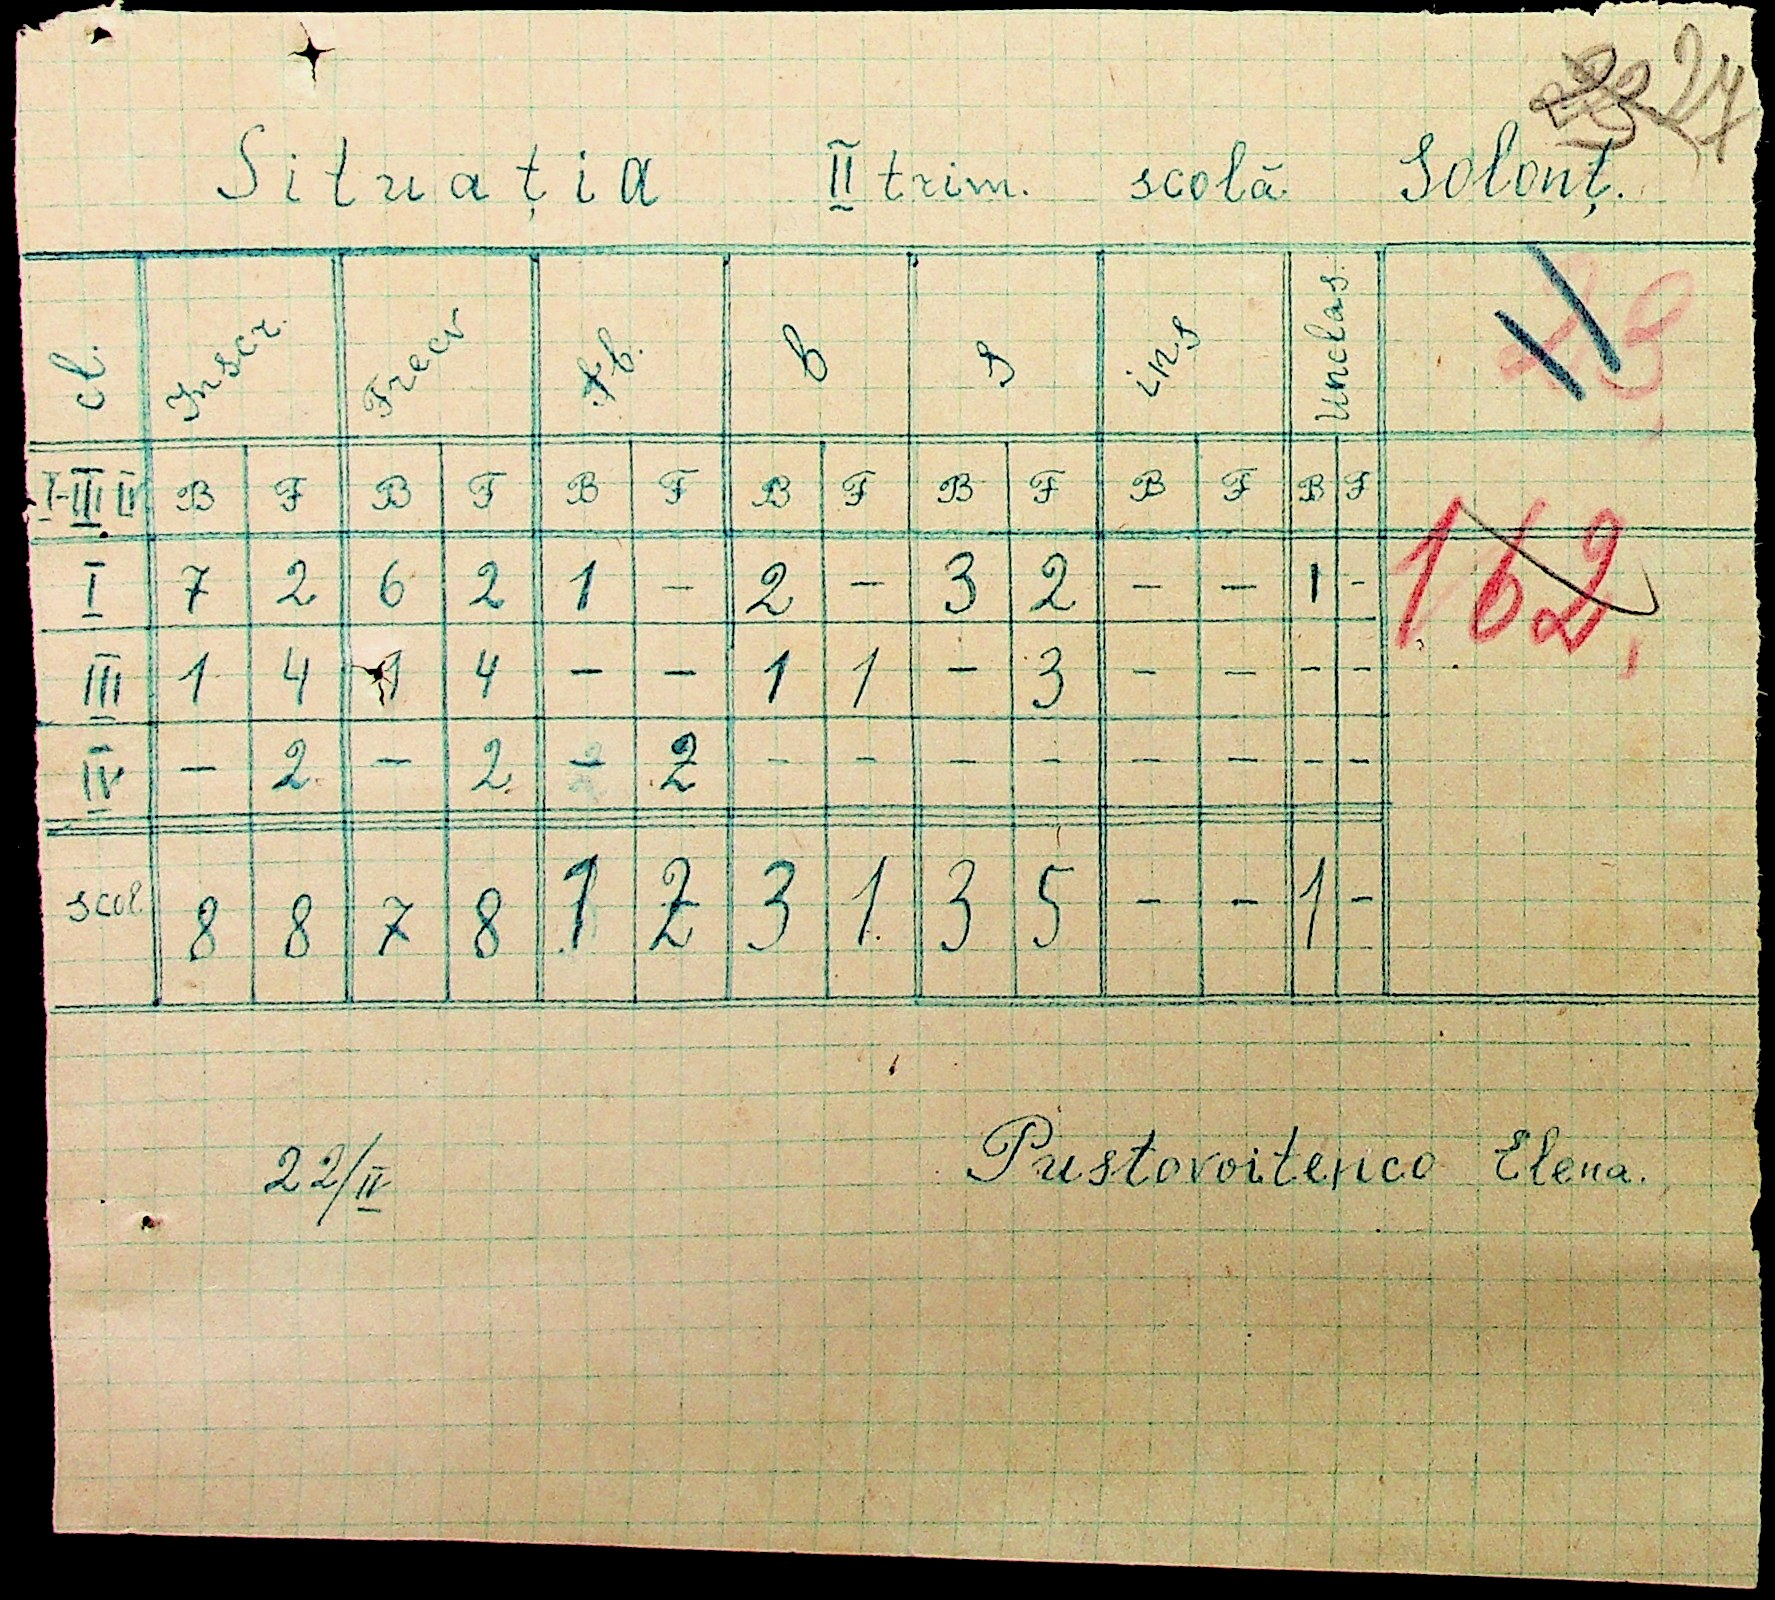 27
Situația II trim. scolă Solonț.
cl. Inscr. Frecv fb. b s ins unclas.
I-III IV B F B F B F B F B F B F B F
I 7 2 6 2 1 - 2 - 3 2 - - 1 -
162
III 1 4 1 4 - - 1 1 - 3 - - - -
IV - 2 - 2 - 2 - - - - - - - -
scol. 8 8 7 8 1 2 3 1 3 5 - - 1 -
22/II Pustovoitenco Elena.